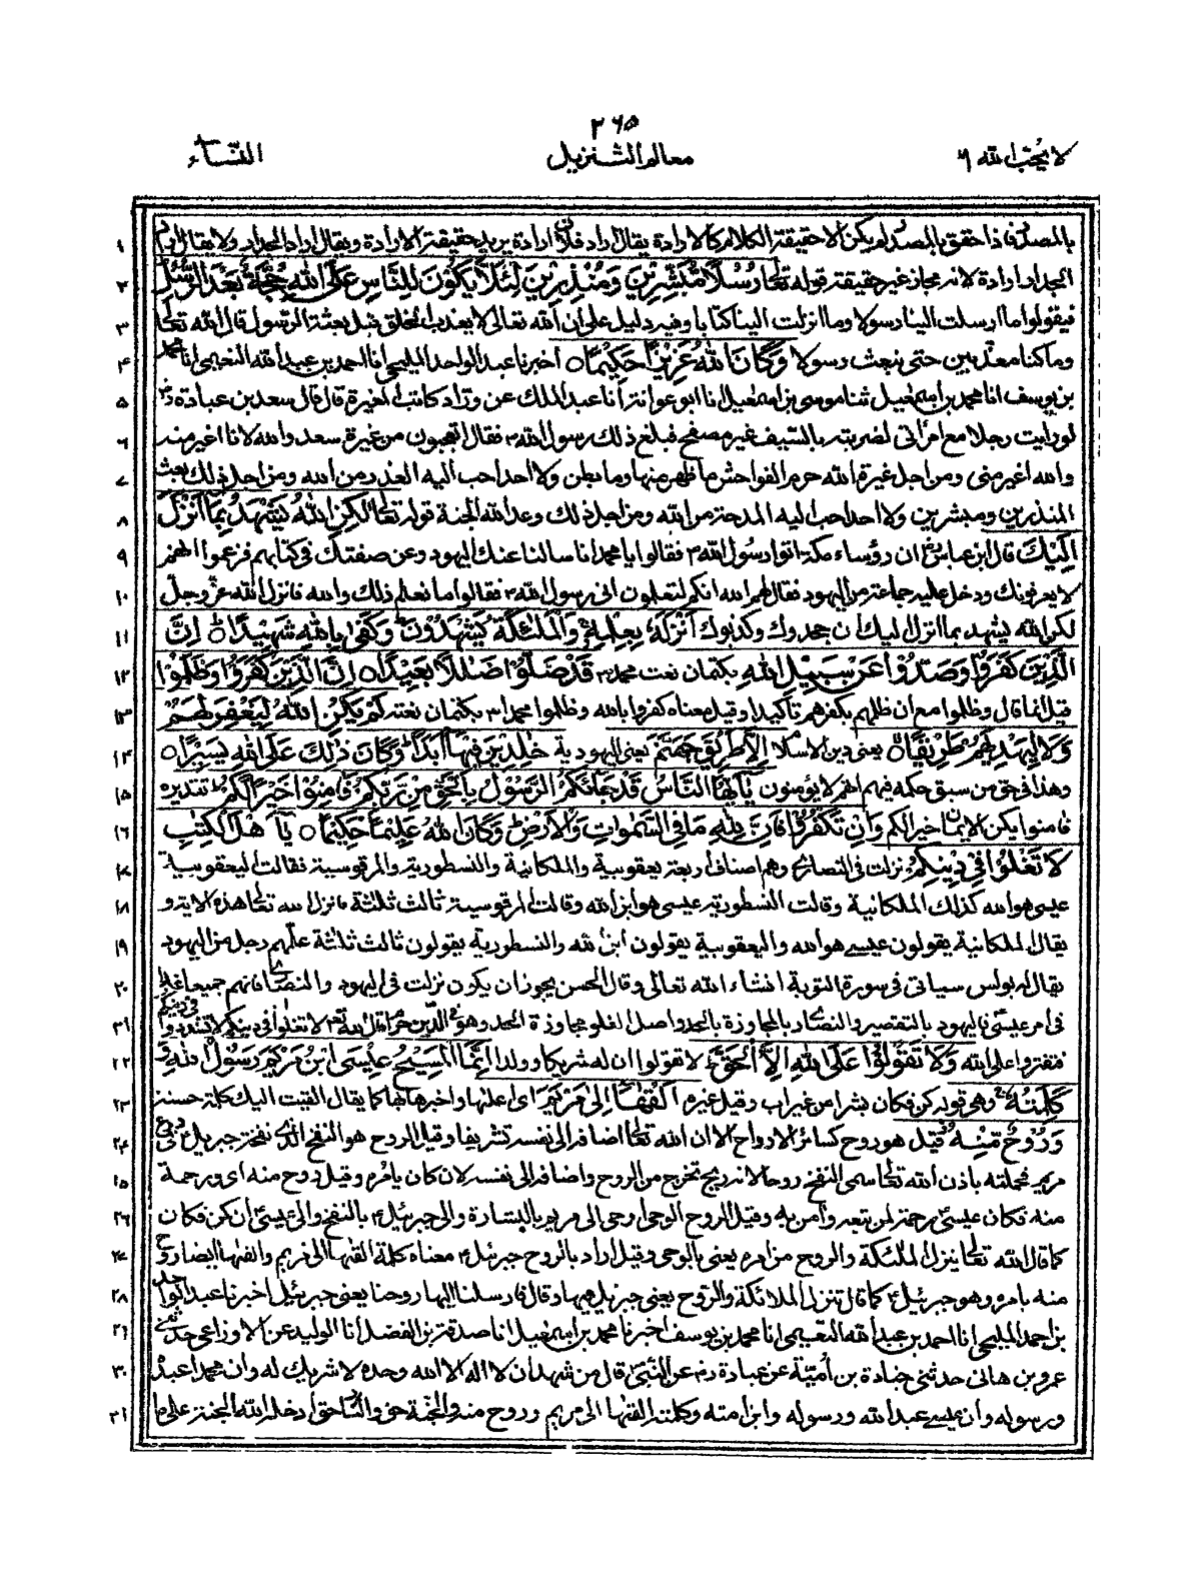 ٢٦٥
لا يحب الله ٦
معالم التنزيل
النساء
بالمصدر فاذا حقق بالمصدر لم يكن الا حقيقة الكلام كالارادة يقال اراد فلان ارادة يريد حقيقة الارادة ويقال اراد الجدار ولا يقال اراد
١
الجدار ارادة لانه مجاز غير حقيقة قوله تعالى رُسُلًا مُّبَشِّرِيْنَ وَمُنْذِرِيْنَ لِئَلَّا يَكُوْنَ لِلنَّاسِ عَلَى اللهِ حُجَّةٌ بَعْدَ الرُّسُلِ
٢
فيقولوا ما ارسلت الينا رسولا وما انزلت الينا كتابا وفيه دليل على ان الله تعالى لا يعذب الخلق قبل بعثة الرسول قال الله تعالى
٣
وما كنا معذبين حتى نبعث رسولا وَكَانَ اللهُ عَزِيْزًا حَكِيْمًا ○ اخبرنا عبد الواحد المليحى انا احمد بن عبد الله النعيمى انا محمد
٤
بن يوسف انا محمد بن اسمعيل ثنا موسى بن اسمعيل انا ابو عوانة انا عبد الملك عن وراد كاتب المغيرة قال قال سعد بن عبادة رض
٥
لو رايت رجلا مع امراتى لضربته بالسيف غير مصفح فبلغ ذلك رسول الله ﷺ فقال اتعجبون من غيرة سعد والله لانا اغير منه
٦
والله اغير منى ومن اجل غيرة الله حرم الفواحش ما ظهر منها وما بطن ولا احد احب اليه العذر من الله ومن اجل ذلك بعث
٧
المنذرين ومبشرين ولا احد احب اليه المدحة من الله ومن اجل ذلك وعد الله الجنة قوله تعالى لٰكِنِ اللهُ يَشْهَدُ بِمَا اَنْزَلَ
٨
اِلَيْكَ قال ابن عباس رض ان رؤساء مكة اتوا رسول الله ﷺ فقالوا يا محمد انا سالنا عنك اليهود وعن صفتك فى كتابهم فزعموا انهم
٩
لا يعرفونك ودخل عليه جماعة من اليهود فقال لهم والله انكم لتعلمون انى رسول الله ﷺ فقالوا ما نعلم ذلك والله فانزل الله عز وجل
١٠
لكن الله يشهد بما انزل اليك ان جحدوك وكذبوك اَنْزَلَهٗ بِعِلْمِهٖ وَالْمَلٰٓئِكَةُ يَشْهَدُوْنَ وَكَفٰى بِاللهِ شَهِيْدًا ○ اِنَّ
١١
الَّذِيْنَ كَفَرُوْا وَصَدُّوْا عَنْ سَبِيْلِ اللهِ بكتمان نعت محمد ﷺ قَدْ ضَلُّوْا ضَلٰلًا بَعِيْدًا ○ اِنَّ الَّذِيْنَ كَفَرُوْا وَظَلَمُوْا
١٢
قيل انما قال وظلموا مع ان ظلمهم بكفرهم تاكيدا وقيل معناه كفروا بالله وظلموا محمدا ﷺ بكتمان نعته لَمْ يَكُنِ اللهُ لِيَغْفِرَ لَهُمْ
١٣
وَلَا لِيَهْدِيَهُمْ طَرِيْقًا ○ يعنى دين الاسلام اِلَّا طَرِيْقَ جَهَنَّمَ يعنى اليهودية خٰلِدِيْنَ فِيْهَا اَبَدًا وَكَانَ ذٰلِكَ عَلَى اللهِ يَسِيْرًا ○
١٤
وهذا فى حق من سبق حكمه فيهم انهم لا يؤمنون يٰٓاَيُّهَا النَّاسُ قَدْ جَآءَكُمُ الرَّسُوْلُ بِالْحَقِّ مِنْ رَّبِّكُمْ فَاٰمِنُوْا خَيْرًا لَّكُمْ تقديره
١٥
فامنوا يكن الايمان خيرا لكم وَاِنْ تَكْفُرُوْا فَاِنَّ لِلّٰهِ مَا فِى السَّمٰوٰتِ وَالْاَرْضِ وَكَانَ اللهُ عَلِيْمًا حَكِيْمًا ○ يٰٓاَهْلَ الْكِتٰبِ
١٦
لَا تَغْلُوْا فِىْ دِيْنِكُمْ نزلت فى النصارى وهم اصناف اربعة يعقوبية والملكانية والنسطورية والمرقوسية فقالت اليعقوبية
١٧
عيسى هو الله كذلك الملكانية وقالت النسطورية عيسى هو ابن الله وقالت المرقوسية ثالث ثلثة فانزل الله تعالى هذه الاية و
١٨
يقال الملكانية يقولون عيسى هو الله واليعقوبية يقولون ابن الله والنسطورية يقولون ثالث ثلاثة علمهم رجل من اليهود
١٩
يقال له بولس سياتى فى سورة التوبة انشاء الله تعالى وقال الحسن يجوز ان يكون نزلت فى اليهود والنصارى فانهم جميعا غلوا
٢٠
فى امر عيسى فاليهود بالتقصير والنصارى بالمجاوزة بالحد واصل الغلو مجاوزة الحد وهو فى الدين حرام قال الله تعالى لا تغلوا فى دينكم لا تشددوا فى دينكم
٢١
فتفتروا على الله وَلَا تَقُوْلُوْا عَلَى اللهِ اِلَّا الْحَقَّ لا تقولوا ان له شريكا وولدا اِنَّمَا الْمَسِيْحُ عِيْسَى ابْنُ مَرْيَمَ رَسُوْلُ اللهِ وَ
٢٢
كَلِمَتُهٗ وهى قوله كن فكان بشرا من غير اب وقيل غيره اَلْقٰهَآ اِلٰى مَرْيَمَ اى اعلمها واخبرها بها كما يقال القيت اليك كلمة حسنة
٢٣
وَرُوْحٌ مِّنْهُ قيل هو روح كسائر الارواح الا ان الله تعالى اضافه الى نفسه تشريفا وقيل الروح هو النفخ الذى نفخه جبريل فى درع
٢٤
مريم فحملته باذن الله تعالى سمى النفخ روحا لانه ريح تخرج من الروح واضافه الى نفسه لانه كان بامره وقيل روح منه اى ورحمة
٢٥
منه فكان عيسى رحمة لمن تبعه وآمن به وقيل الروح الوحى اوحى الى مريم بالبشارة والى جبرئيل ؑ بالنفخ والى عيسى ان كن فكان
٢٦
كما قال الله تعالى ينزل الملئكة والروح من امره يعنى بالوحى وقيل اراد بالروح جبرئيل ؑ معناه كلمة القٰها الى مريم والقٰها ايضا روح
٢٧
منه بامره وهو جبرئيل ؑ كما قال تنزل الملائكة والروح يعنى جبرئيل فيها وقال فارسلنا اليها روحنا يعنى جبرئيل اخبرنا عبد الواحد
٢٨
بن احمد المليحى انا احمد بن عبد الله النعيمى انا محمد بن يوسف اخبرنا محمد بن اسمعيل انا صدقة بن الفضل انا الوليد عن الاوزاعى حدثنى
٢٩
عمرو بن هانى حدثنى جنادة بن امية عن عبادة رض عن النبى قال من شهد ان لا اله الا الله وحده لا شريك له وان محمدا عبده
٣٠
ورسوله وان عيسى عبد الله ورسوله وابن امته وكلمته القٰها الى مريم وروح منه والجنة حق والنار حق ادخله الله الجنة على ما
٣١